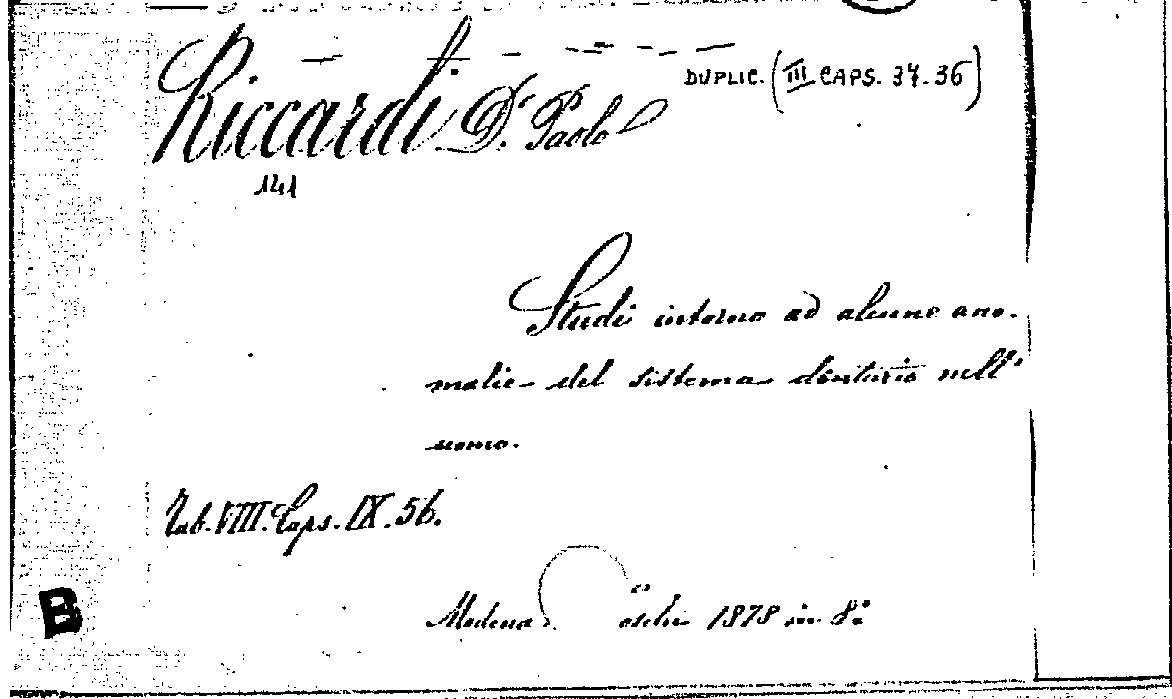 Riccardi Dr. Paolo
DUPLIC. (III CAPS. 37.36)
141
Studi intorno ad alcune ano-
malie del sistema dentario nell'
uomo.
Tab. VIII. Caps. IX. 56.
Modena 1878 in 8°
B